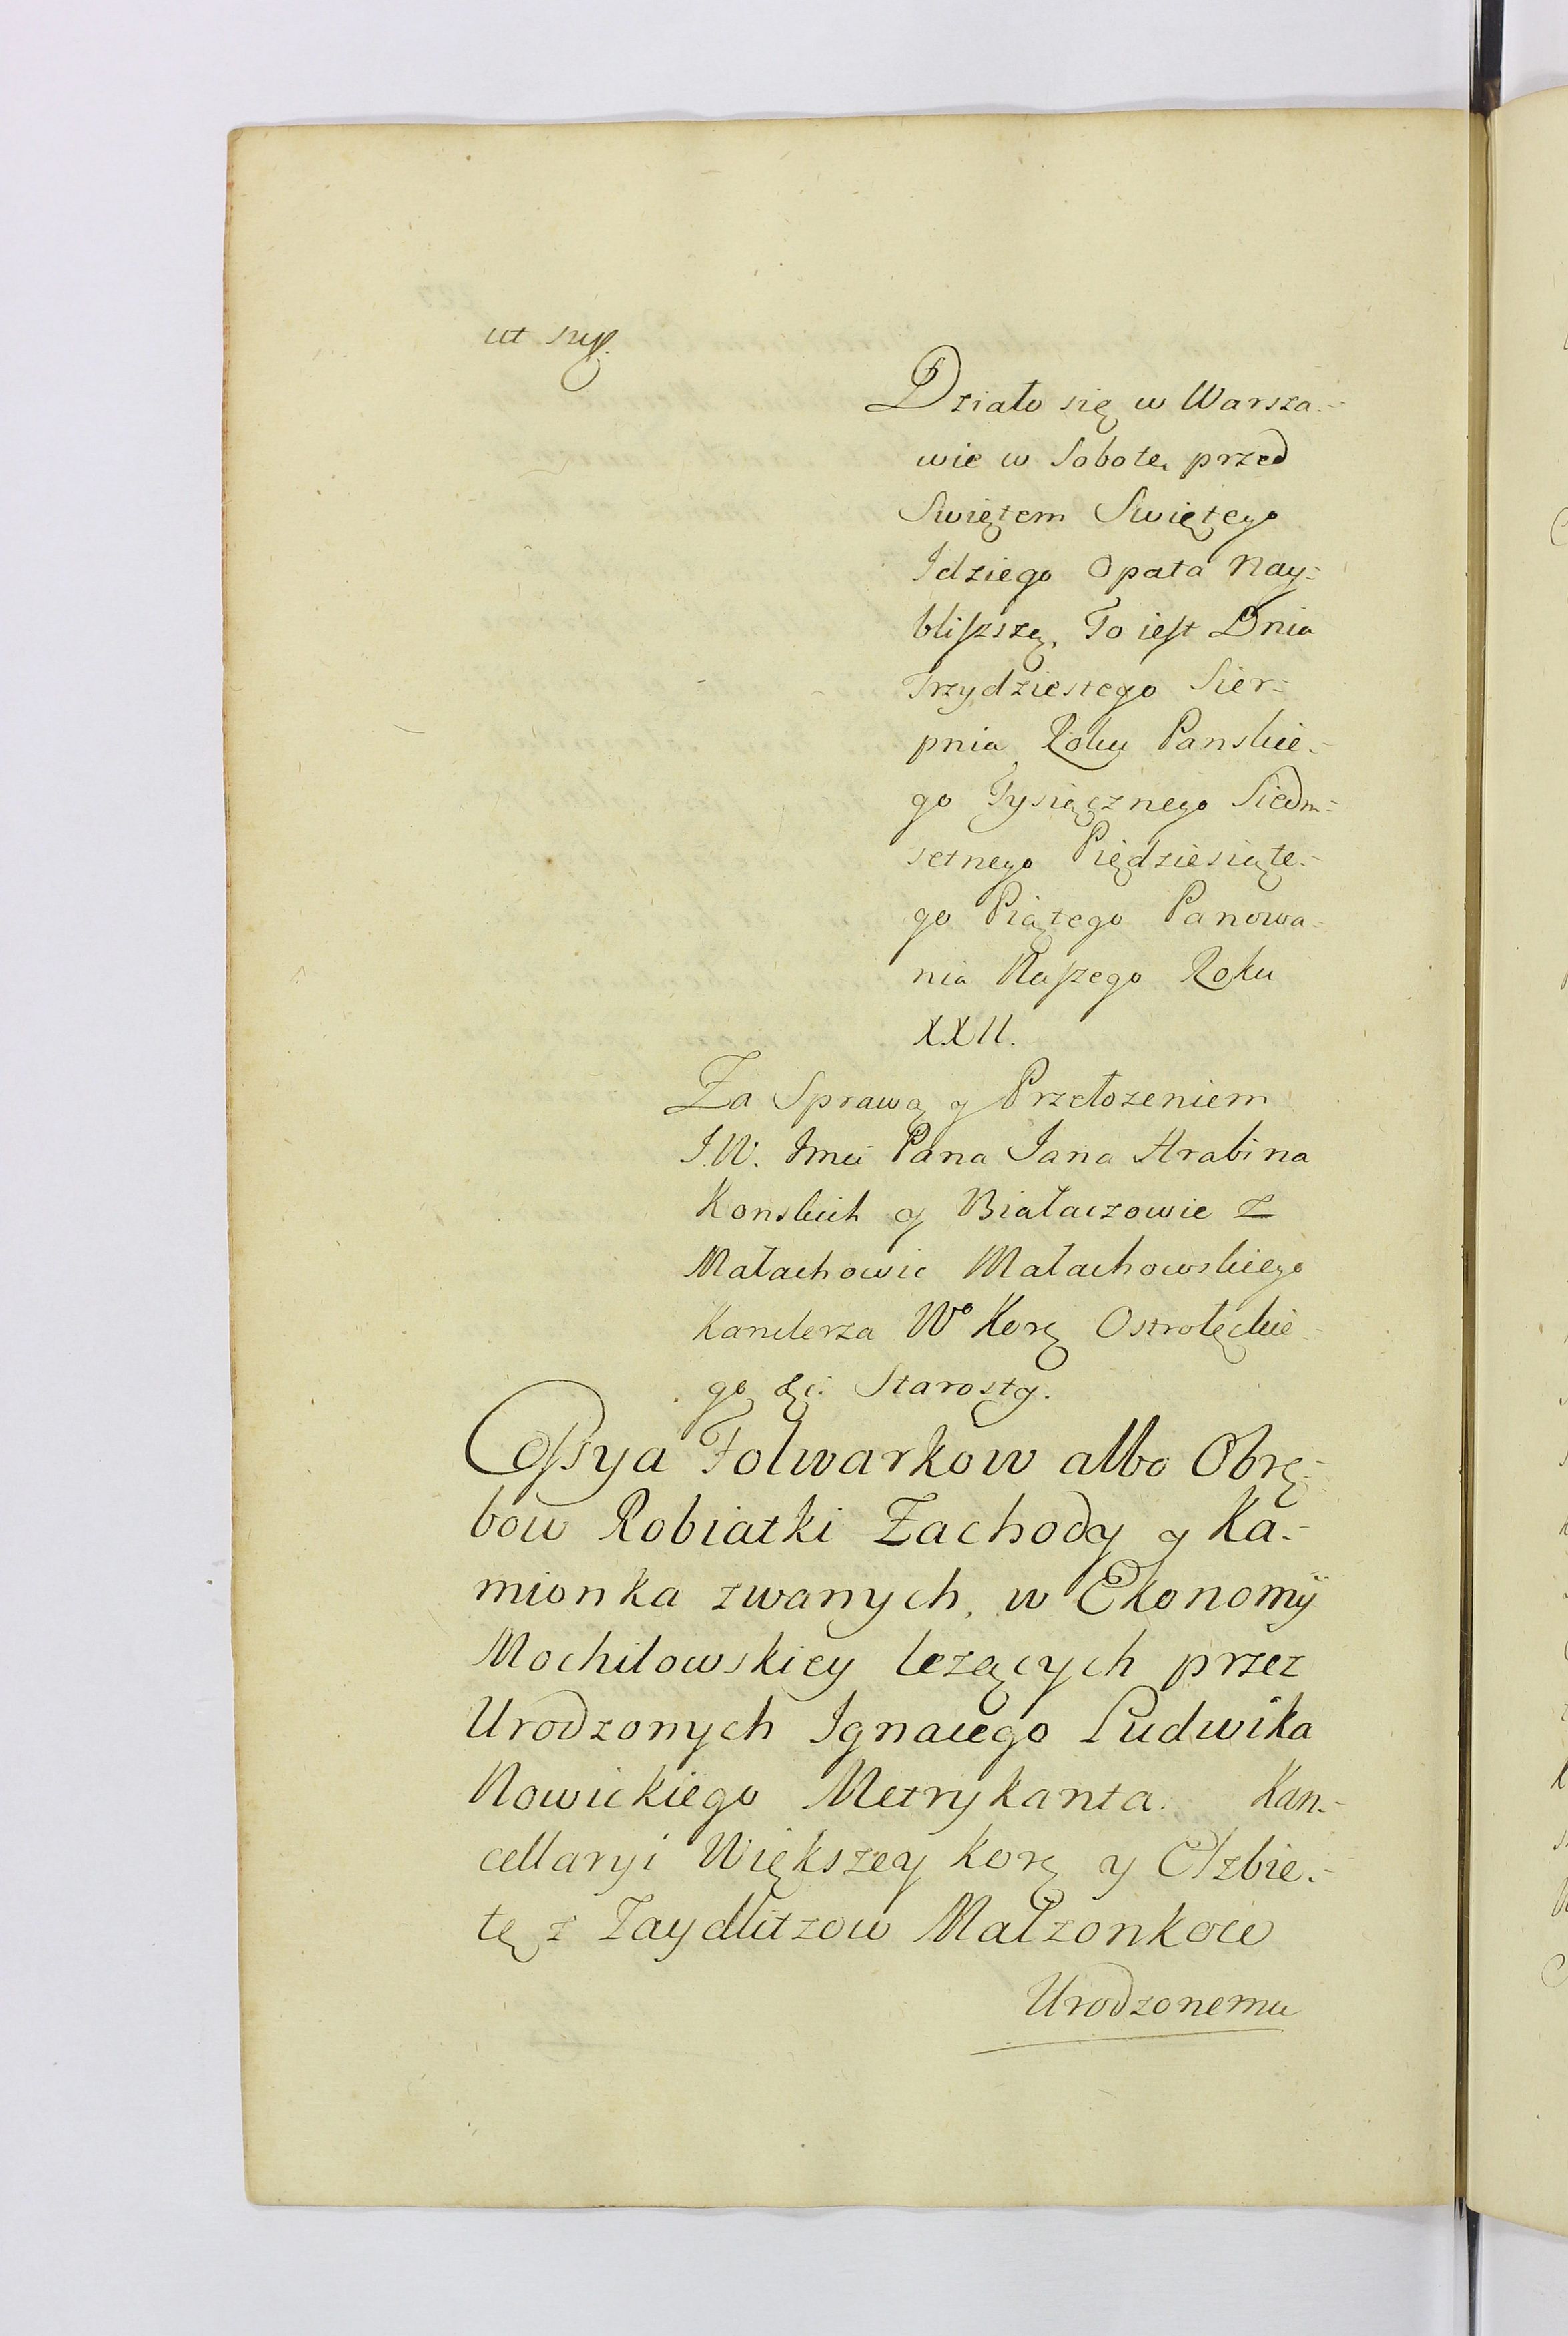 ut sup.
Działo się w Warsza=
wie w Sobotę przed
Swiętem Swiętego
Idziego Opata Nay=
bliſzszą, To ieſt Dnia
Trzydziestego Sier=
pnia Roku Panskie=
go Tysiącznego Siedm=
setnego Piędziesiąte=
go Piątego Panowa=
nia Naſzego Roku
XXII.
Za Sprawą y Przełozeniem
J.W. Jmci Pana Jana Hrabi na
Konskich y Białaczowie z
Małachowic Małachowskiego
Kanclerza Wo Kor. Ostrołęckie=
go &c. Starosty.
Ceſsya Folwarkow albo Obrę=
bow Robiatki Zachody y Ka=
mionka zwanych, w Ekonomij
Mochilowskiey lezących przez
Urodzonych Ignacego Ludwika
Nowickiego Metrykanta Kan=
cellaryi Większey Kor. y Elzbie=
tę z Zaydlitzow Małzonkow
Urodzonemu